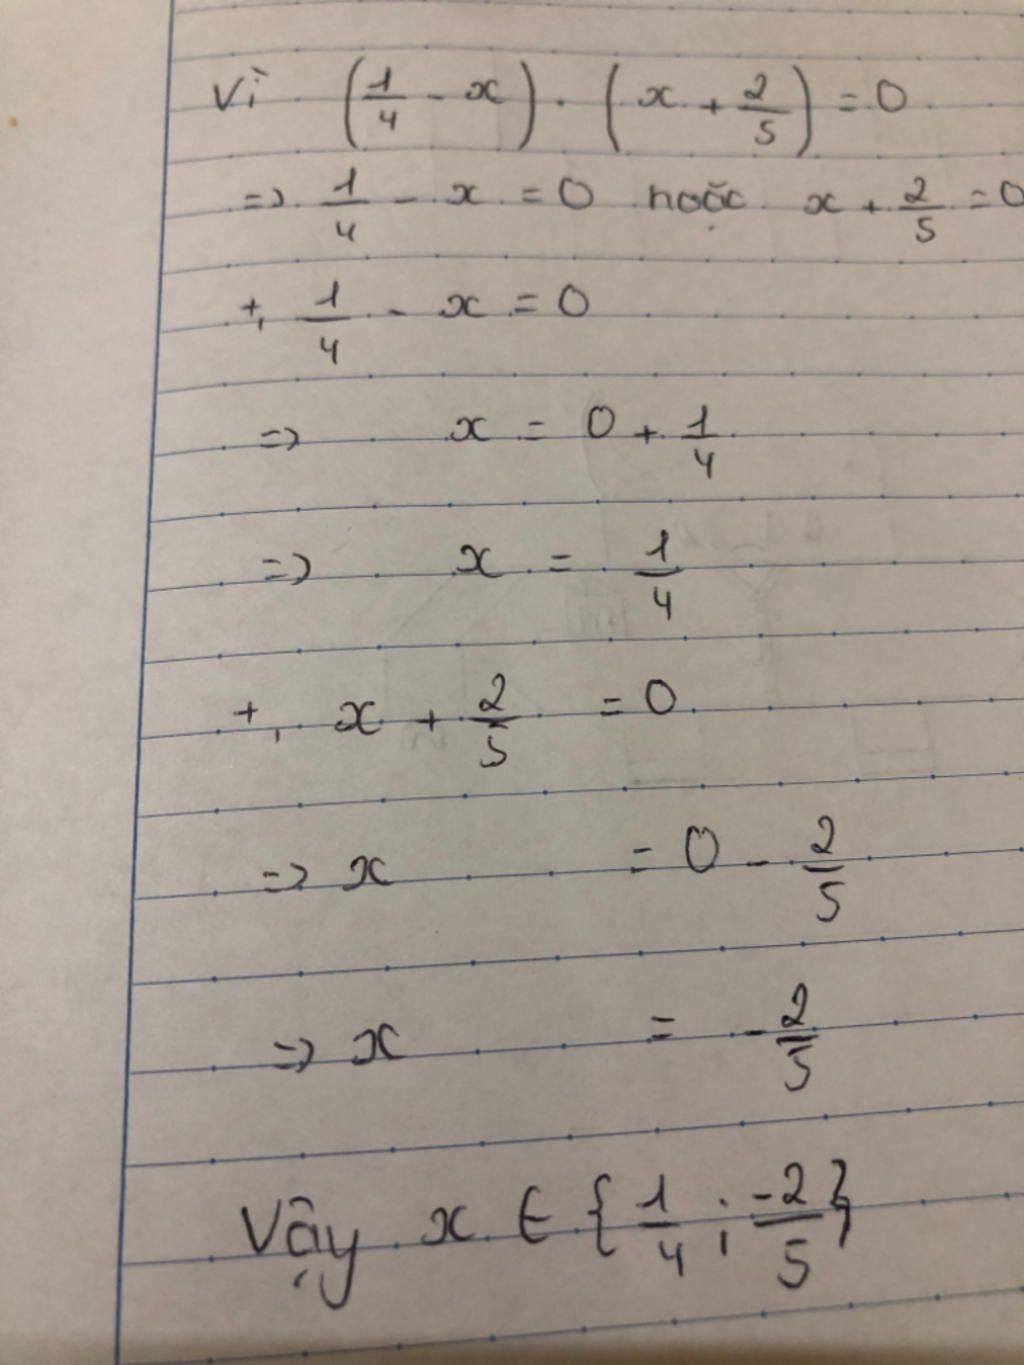 Vì (1/4 - x) . (x + 2/5) = 0
=> 1/4 - x = 0 hoặc x + 2/5 = 0
+, 1/4 - x = 0
=> x = 0 + 1/4
=> x = 1/4
+, x + 2/5 = 0
=> x = 0 - 2/5
=> x = - 2/5
Vậy x ∈ {1/4 ; -2/5}